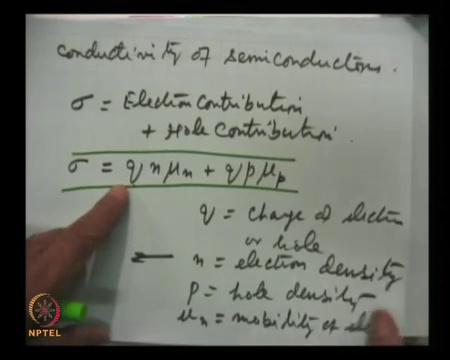 conductivity of semiconductors.
σ = Electron Contribution
+ Hole Contribution.
σ = q n μn + q p μp
q = charge of electron
or hole
n = electron density
p = hole density
μn = mobility of ele
NPTEL